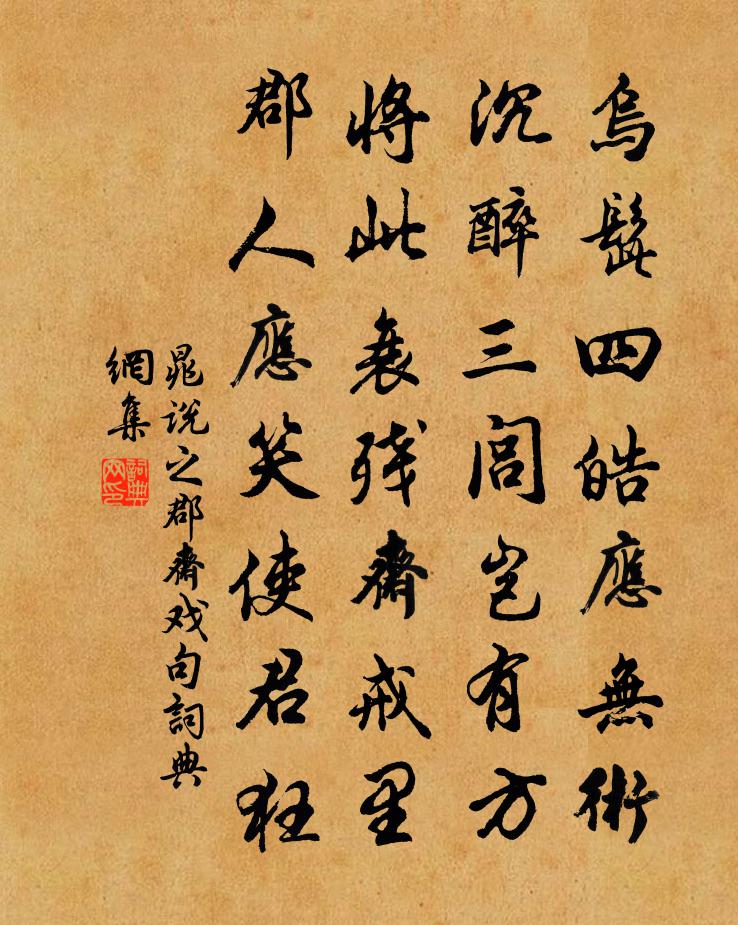 烏髭四皓應無術
沉醉三閭豈有方
將此衰残齋戒里
郡人應笑使君狂
晁说之郡齋戏句詞典
網集
詞典
网印